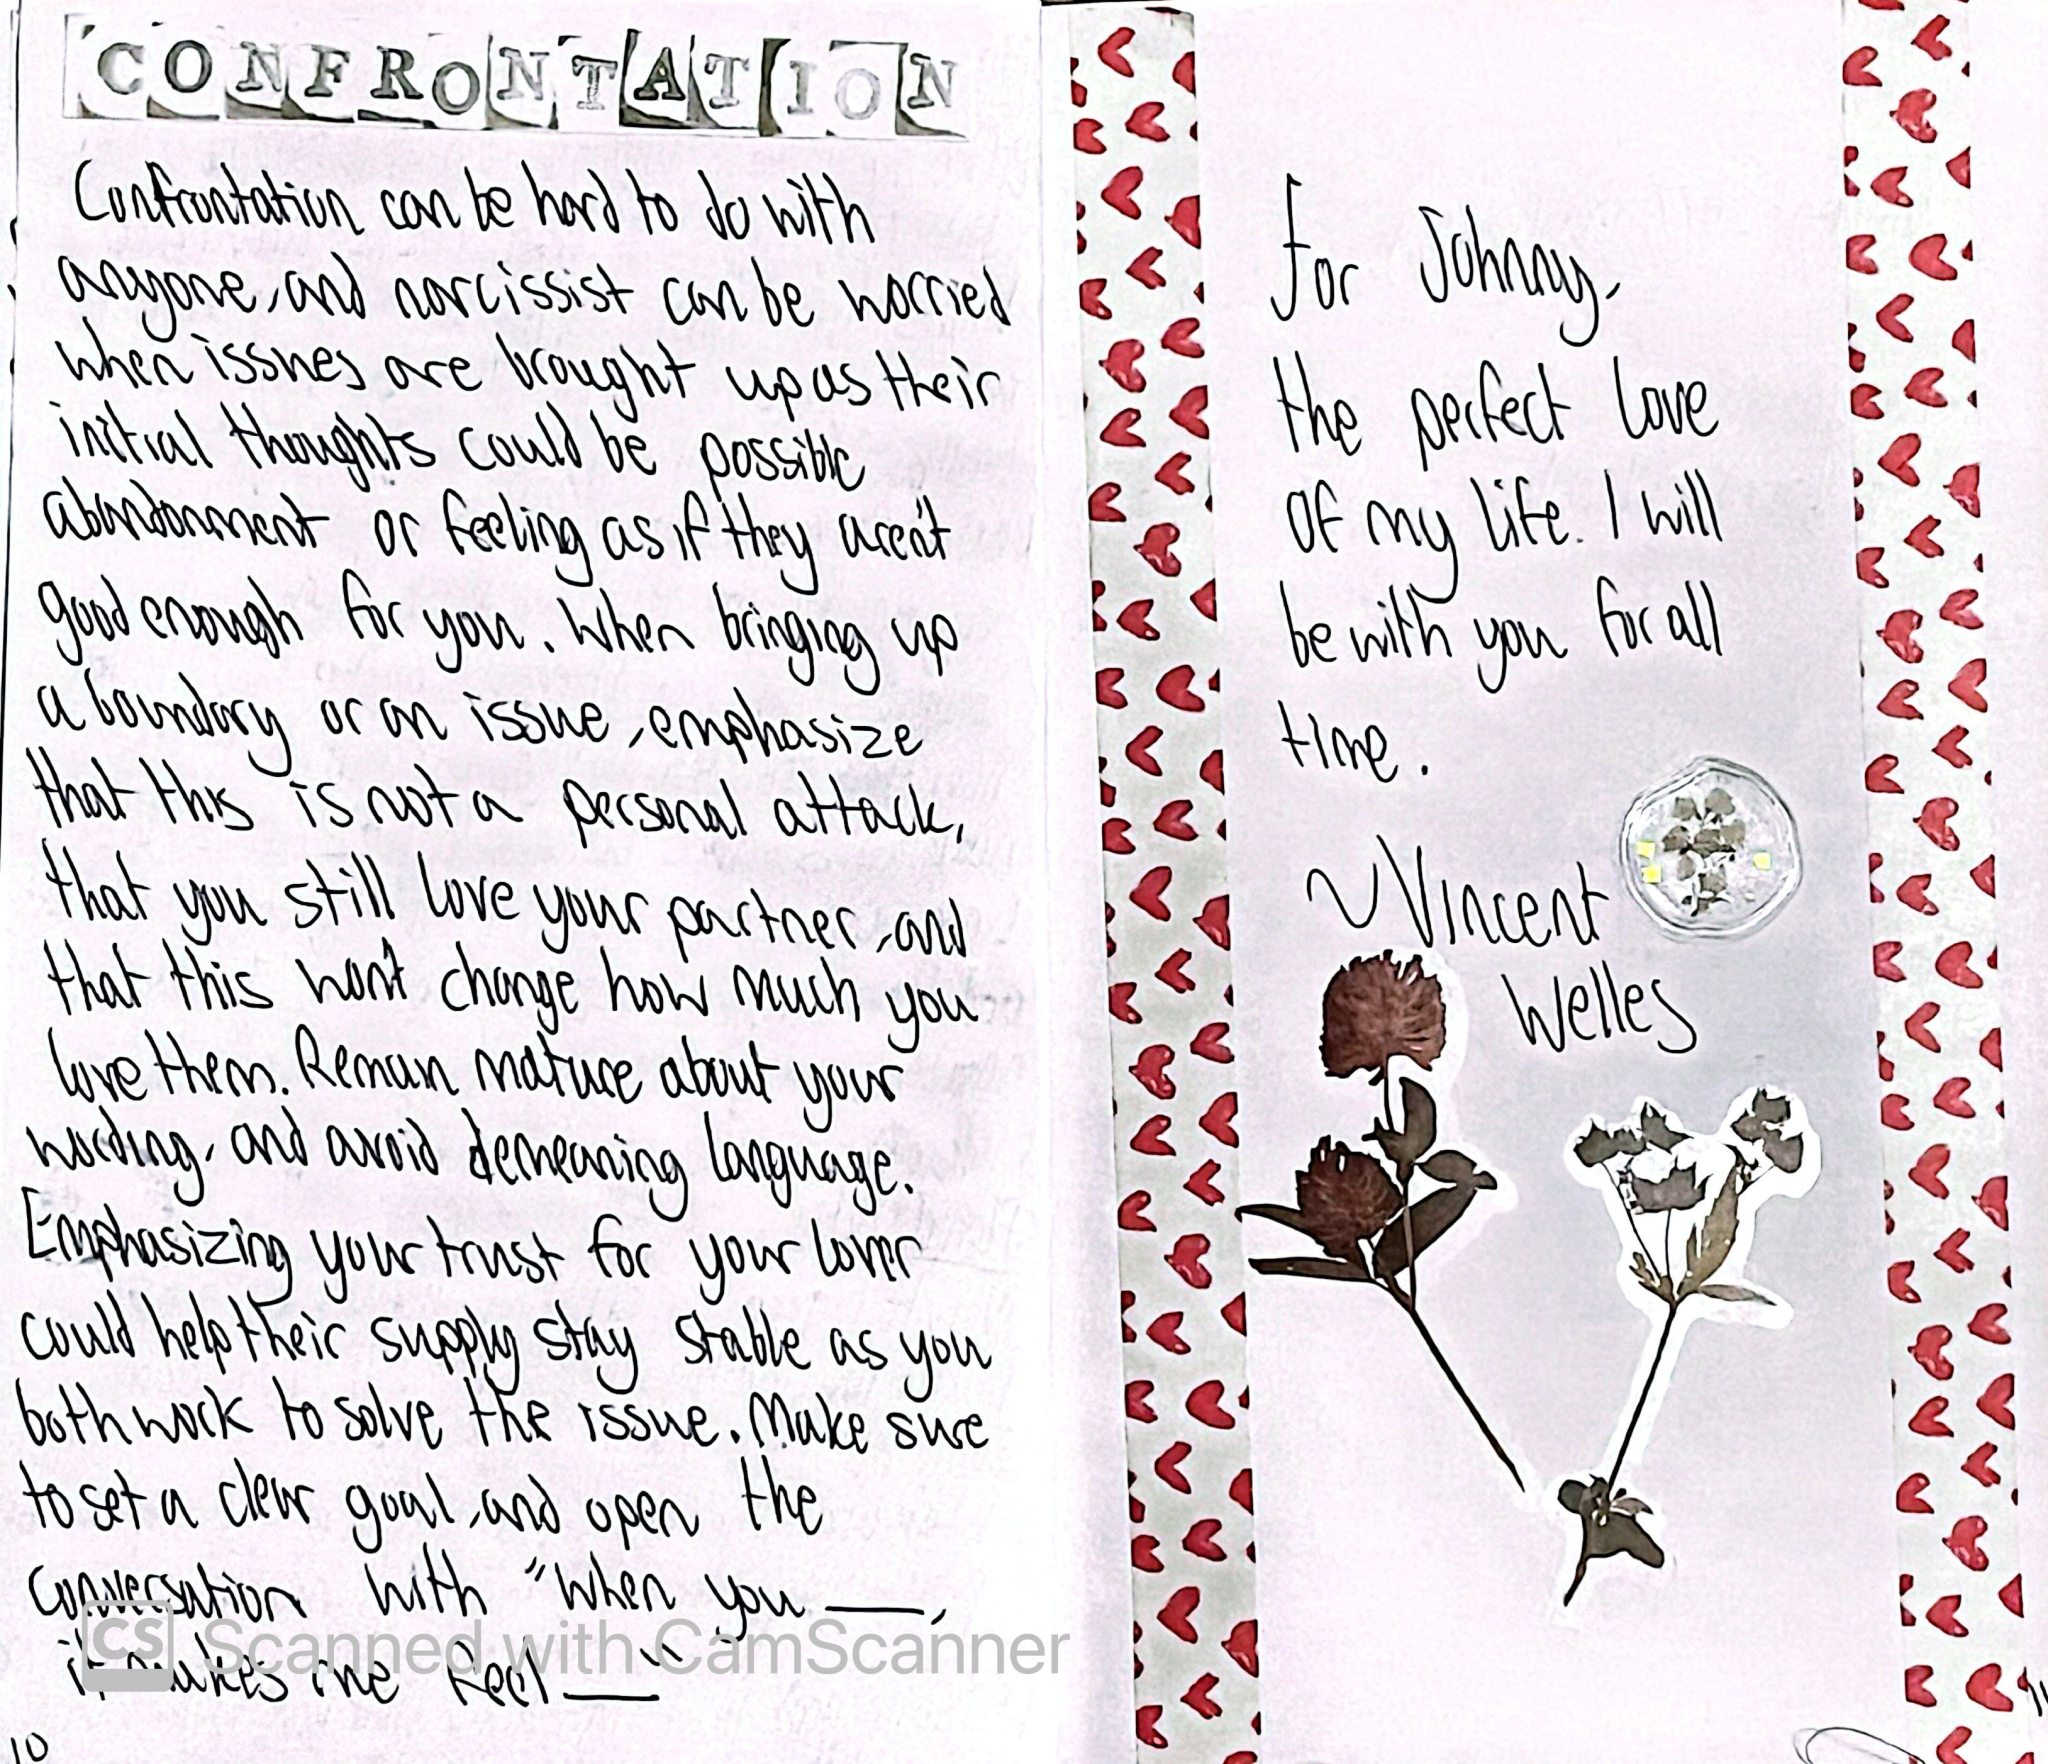 CONFRONTATION
Confrontation can be hard to do with
anyone, and narcissist can be worried
when issues are brought up as their
initial thoughts could be possible
abandonment or feeling as if they aren't
good enough for you. When bringing up
a boundary or an issue, emphasize
that this is not a personal attack,
that you still love your partner, and
that this won't change how much you
love them. Remain mature about your
wording, and avoid demeaning language.
Emphasizing your trust for your lover
could help their supply stay stable as you
both work to solve the issue. Make sure
to set a clear goal, and open the
conversation with "When you ___,
it makes me feel ___"
CS Scanned with CamScanner
10
For Johnny,
the perfect love
of my life. I will
be with you for all
time.
~Vincent
Welles
11